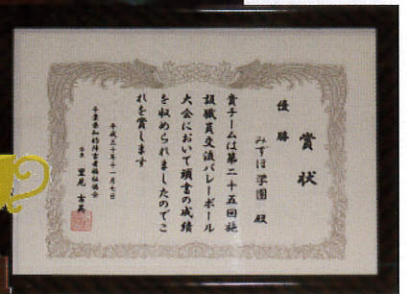 賞状
優勝
みずほ学園 殿
貴チームは第二十五回施
設職員交流バレーボール
大会において頭書の成績
を収められましたのでこ
れを賞します
平成三十年十一月七日
千葉県知的障害者福祉協会
会長 里見 吉英